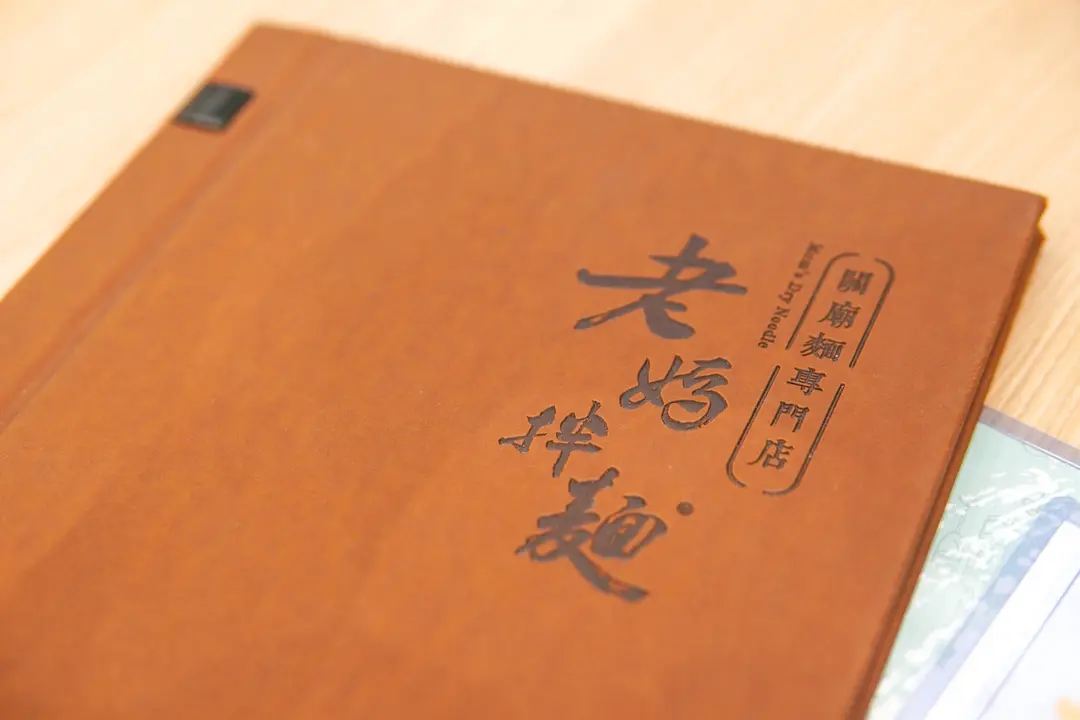 關廟麵專門店
Mom's Dry Needle
老媽拌麵